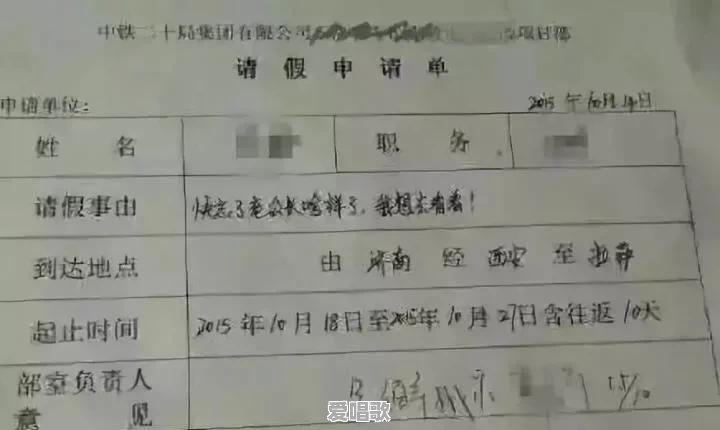 中铁二十局集团有限公司 项目部
请假申请单
申请单位: 2015年10月14日
姓名 职务
请假事由 快忘了老公长啥样了,我想去看看!
到达地点 由 济南 经 西安 至 拉萨
起止时间 2015年10月18日至2015年10月27日含往返10天
部室负责人
意见 15/10
爱唱歌